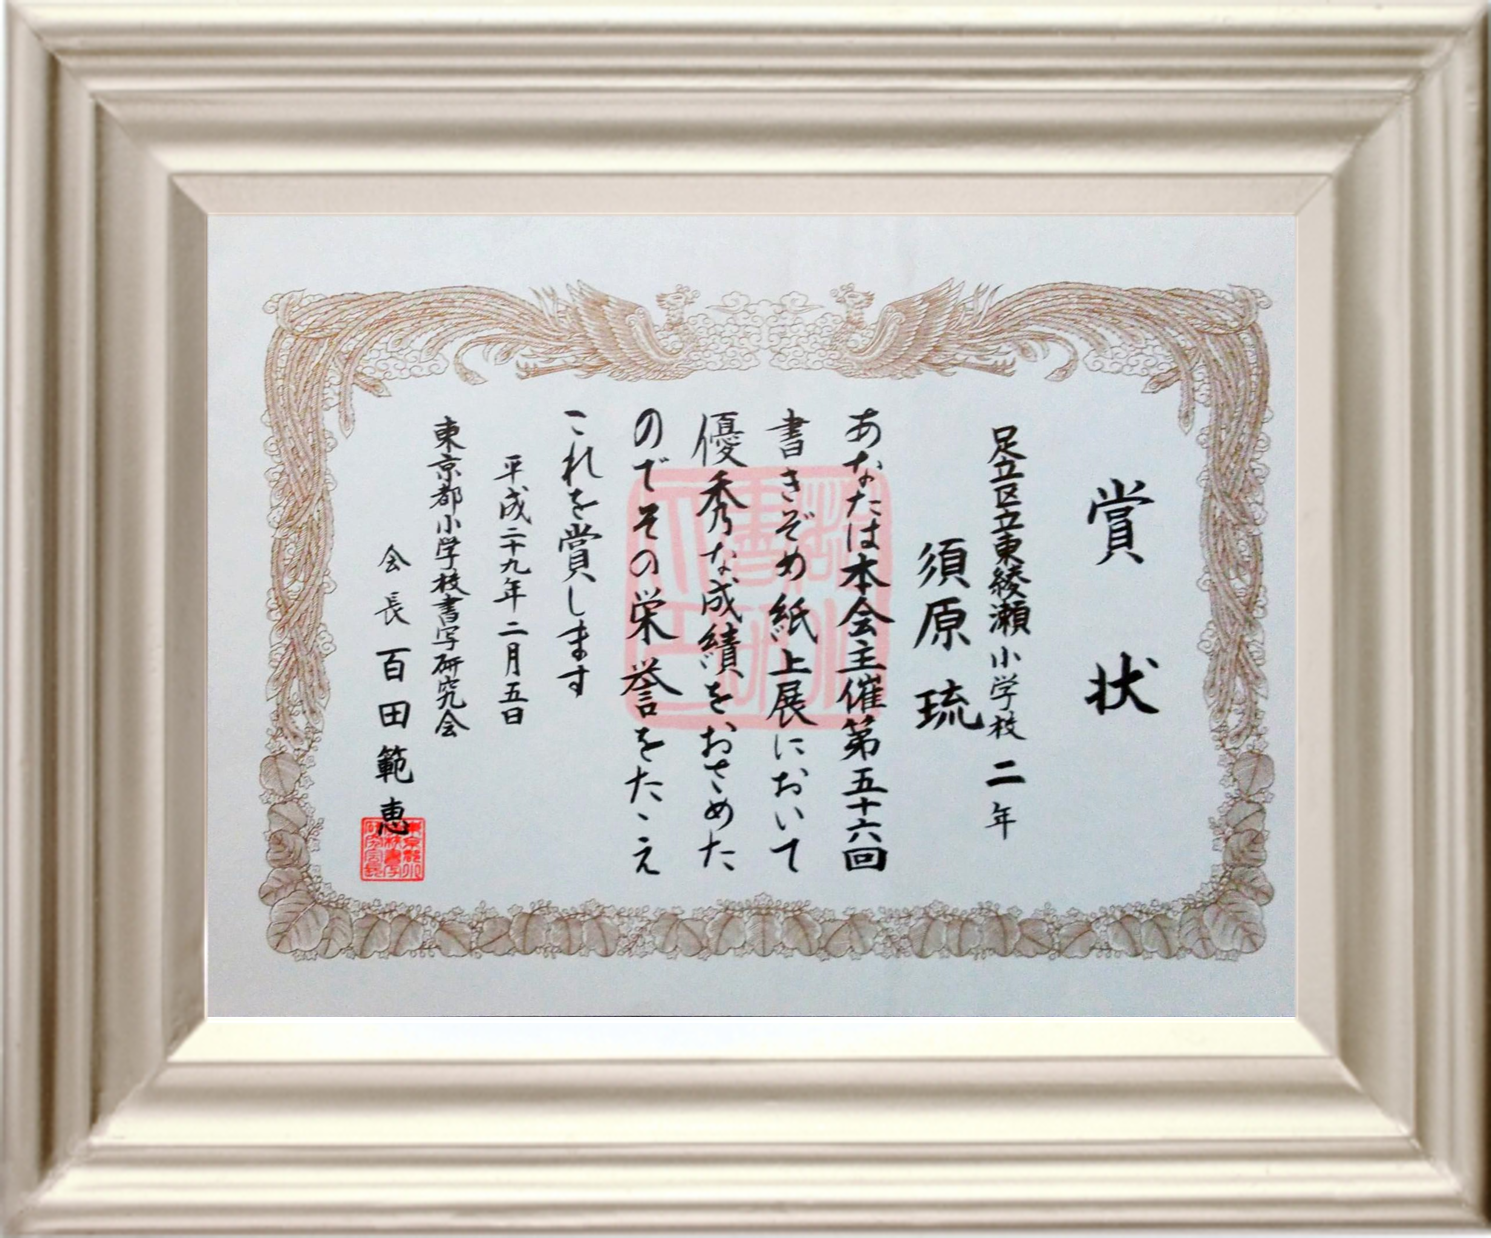 賞状
足立区立東綾瀬小学校二年
須原琉
あなたは本会主催第五十六回
書きぞめ紙上展において
優秀な成績をおさめた
のでその栄誉をたゝえ
これを賞します
平成二十九年二月五日
東京都小学校書写研究会
会長百田範恵